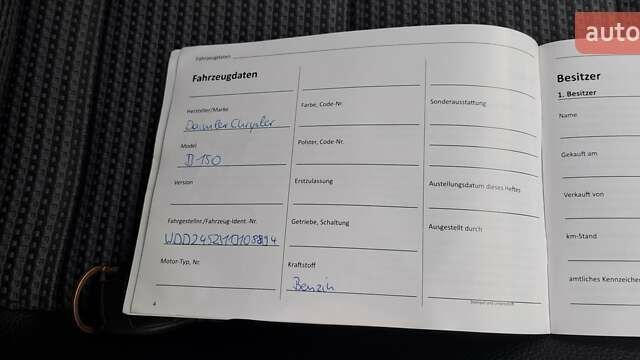 auto
Fahrzeugdaten
Fahrzeugdaten
Hersteller/Marke
Daimler Chrysler
Model
B 150
Version
Fahrgestellnr./Fahrzeug-Ident.-Nr.
Motor-Typ, Nr.
4
Farbe, Code-Nr.
Polster, Code-Nr.
Erstzulassung
Getriebe, Schaltung
Kraftstoff
Benzin
Sonderausstattung
Austellungsdatum dieses Heftes
Ausgestellt durch
Stempel und Unterschrift
Besitzer
1. Besitzer
Name
Gekauft am
Verkauft von
km-Stand
amtliches Kennzeichen